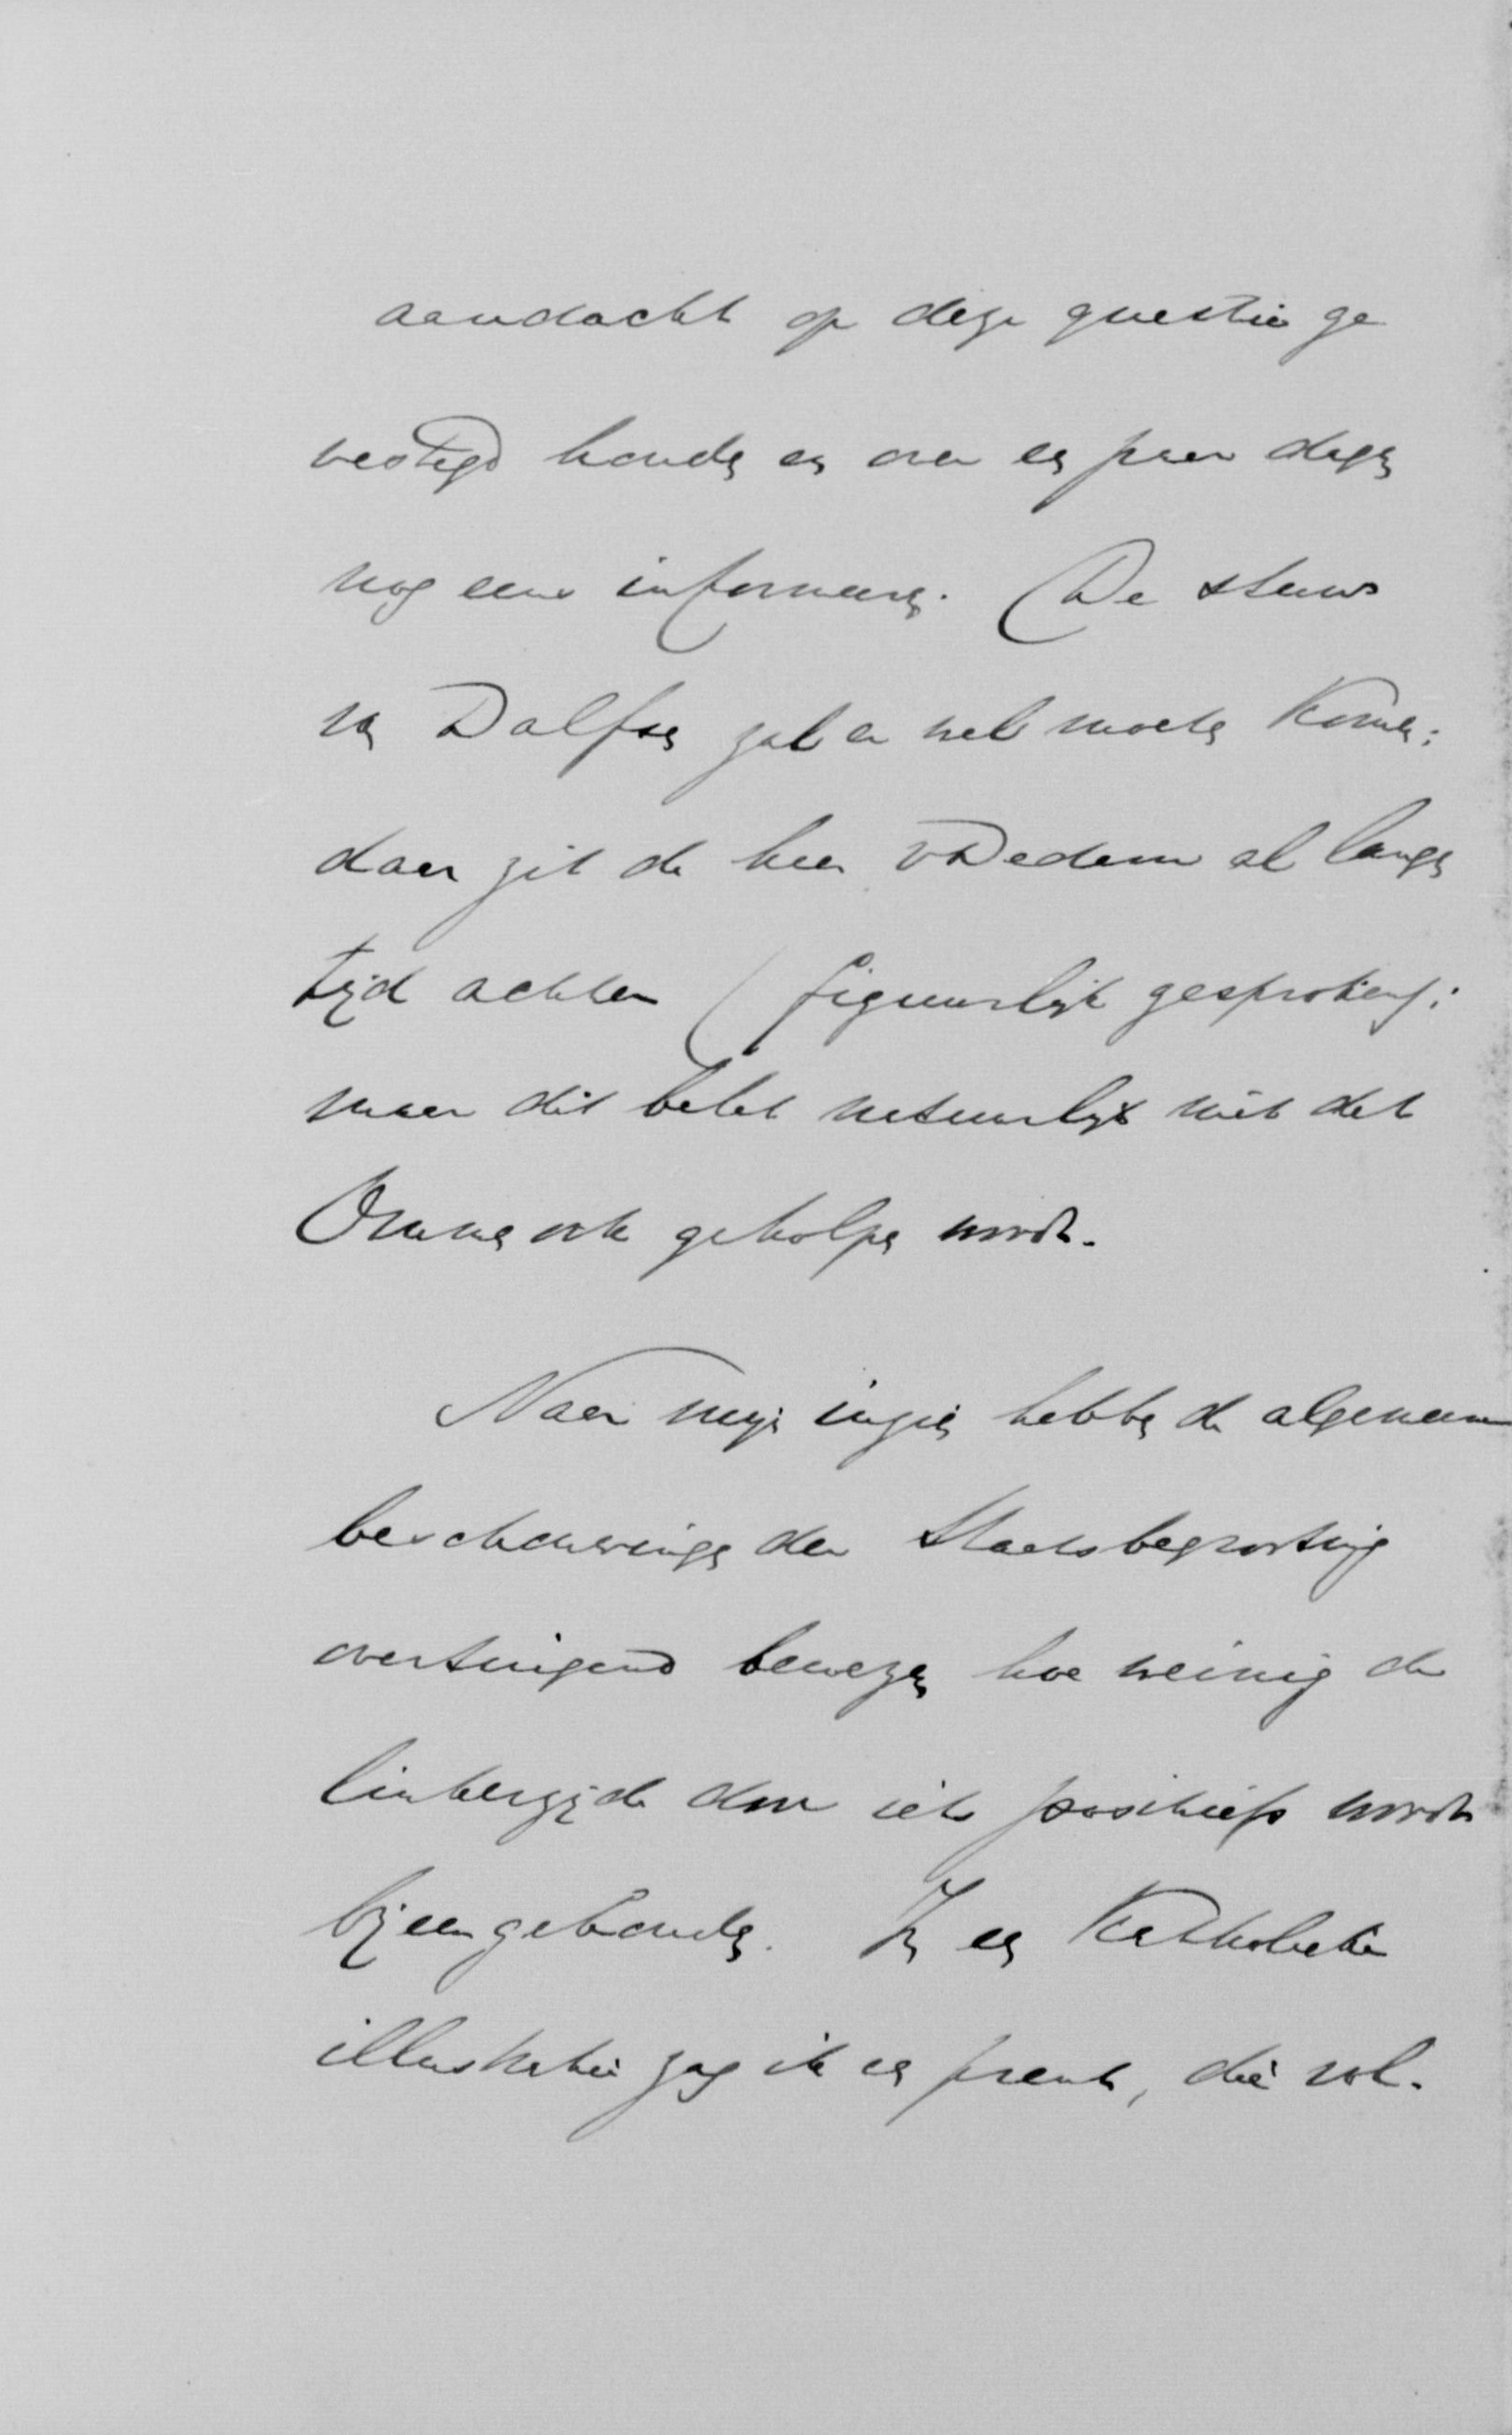 aandacht op deze questie ge
vestigd houden en over een paar dagen
nog eens informeeren. De stuw
in Dalfsen zal er wel moeten komen:
daar zit de heer vDedem al langen
tijd achter (figuurlijk gesproken):
maar dit belet natuurlijk niet dat
Ommen ook geholpen wordt.
Naar mijn inzien hebben de algemeene
beschouwingen der Staatsbegrooting
overtuigend bewezen hoe weinig de
linkerzijde door iets positiefs wordt
bijeengehouden. In een Katholieke
illustratie zag ik een prent, die vol-